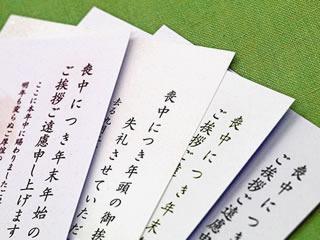 喪中につき年末年始の
ご挨拶ご遠慮申し上げます
ここに本年中に賜わりました
明年も変らぬご厚情の
喪中につき年頭の御挨
失礼させていただ
去る
喪中につき年
ご挨拶ご遠慮
喪中につき
ご挨拶ご遠慮申